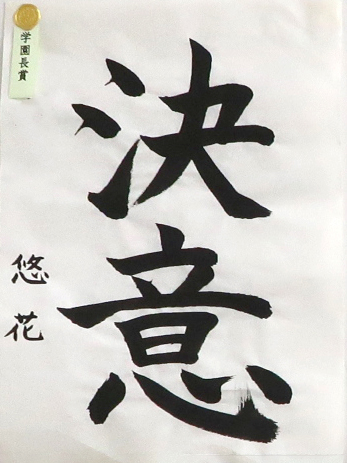 学園長賞
決意
悠花